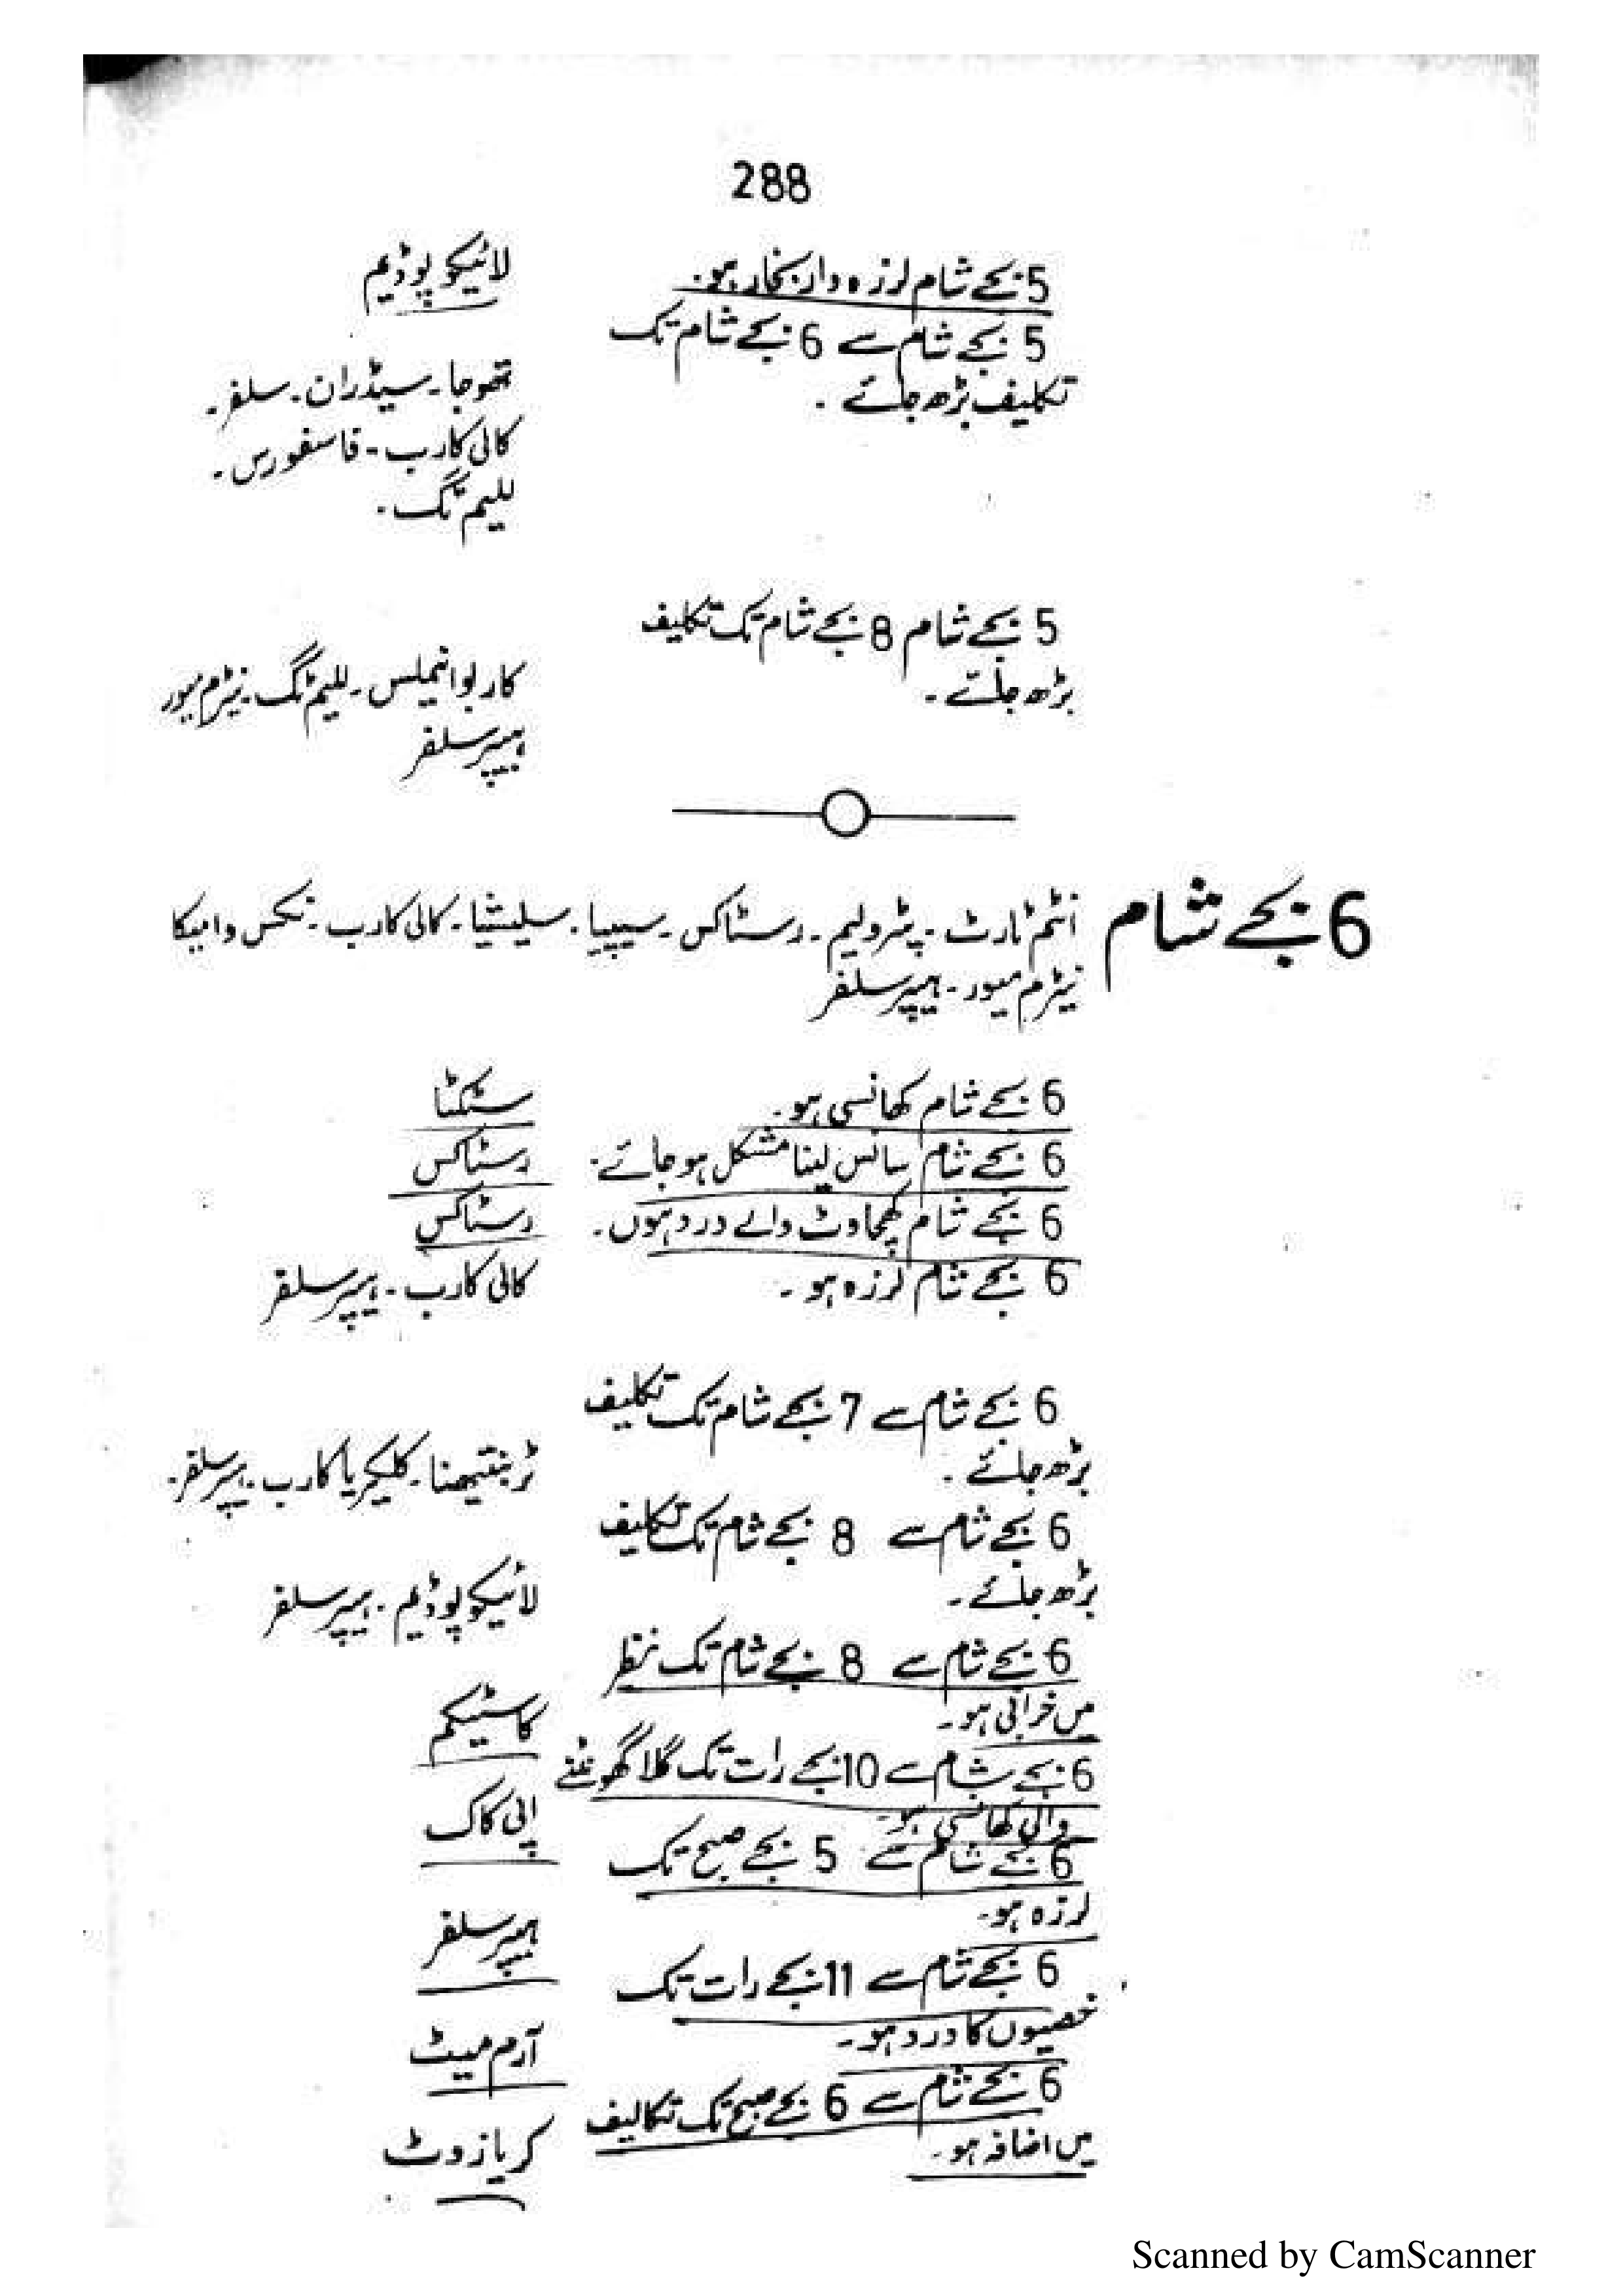 288
5 بجے شام لرزہ دار بخار ہو۔
لائیکو پوڈیم
5 بجے شام سے 6 بجے شام تک
تکلیف بڑھ جائے ۔
تھوجا۔ سیڈران۔ سلفر۔
کالی کارب۔ فاسفورس۔
للیم ٹگ۔
5 بجے شام 8 بجے شام تک تکلیف
بڑھ جائے ۔
کاربوانیملس۔ للیم ٹگ۔ نیٹرم میور
ہیپر سلفر
6 بجے شام
انٹم ٹارٹ۔ پٹرولیم۔ رسٹاکس۔ سیپیا۔ سلیشیا۔ کالی کارب۔ نکس وامیکا
نیٹرم میور۔ ہیپر سلفر
6 بجے شام کھانسی ہو۔
سٹکٹا
6 بجے شام سانس لینا مشکل ہو جائے۔
رسٹاکس
6 بجے شام کھچاوٹ والے درد ہوں۔
رسٹاکس
6 بجے شام لرزہ ہو ۔
کالی کارب۔ ہیپر سلفر
6 بجے شام سے 7 بجے شام تک تکلیف
بڑھ جائے ۔
ٹربنتھینا۔ کلیکریا کارب۔ ہیپر سلفر۔
6 بجے شام سے 8 بجے شام تک تکلیف
بڑھ جائے ۔
لائیکو پوڈیم۔ ہیپر سلفر
6 بجے شام سے 8 بجے شام تک نظر
میں خرابی ہو۔
کاسٹیکم
6 بجے شام سے 10 بجے رات تک گلا گھونٹنے
والی کھانسی ہو۔
اپی کاک
6 بجے شام سے 5 بجے صبح تک
لرزہ ہو۔
ہیپر سلفر
6 بجے شام سے 11 بجے رات تک
خصیوں کا درد ہو۔
آرم میٹ
6 بجے شام سے 6 بجے صبح تک تکالیف
میں اضافہ ہو۔
کریازوٹ
Scanned by CamScanner